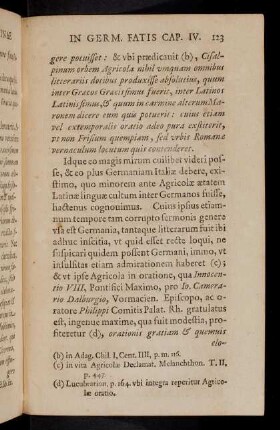 IN GERM. FATIS CAP. IV. 123
gere potuisset: & vbi praedicauit (b), Cisal-
pinum orbem Agricola nihil vnquam omnibus
litterariis dotibus produxisse absolutius, quum
inter Graecos Graecissimus fuerit, inter Latinos
Latinissimus, & quum in carmine alterum Ma-
ronem dicere eum quis potuerit: cuius etiam
vel extemporalis oratio adeo pura exstiterit,
vt non Frisium quempiam, sed vrbis Romanae
vernaculum locutum quis contenderet.
Idque eo magis mirum cuilibet videri pos-
se, & eo plus Germaniam Italiae debere, exi-
stimo, quo minorem ante Agricolae aetatem
Latinae linguae cultum inter Germanos fuisse,
hactenus cognouimus. Cuius ipsus etiam-
num tempore tam corrupto sermonis genere
vsa est Germania, tantaque litterarum fuit ibi
adhuc inscitia, vt quid esset recte loqui, ne
suspicari quidem possent Germani, immo, vt
insulsitas etiam admirationem haberet (c);
& vt ipse Agricola in oratione, qua Innocen-
tio VIII, Pontifici Maximo, pro Io. Camera-
rio Dalburgio, Vormacien. Episcopo, ac o-
ratore Philippi Comitis Palat. Rh. gratulatus
est, ingenue maxime, qua fuit modestia, pro-
fiteretur (d), orationis gratiam & quemuis
elo-
(b) in Adag. Chil. I, Cent. IIII, p. m. 116.
(c) in vita Agricolae Declamat. Melanchthon. T. II,
p. 447.
(d) Lucubration. p. 164. vbi integra reperitur Agrico-
lae oratio.